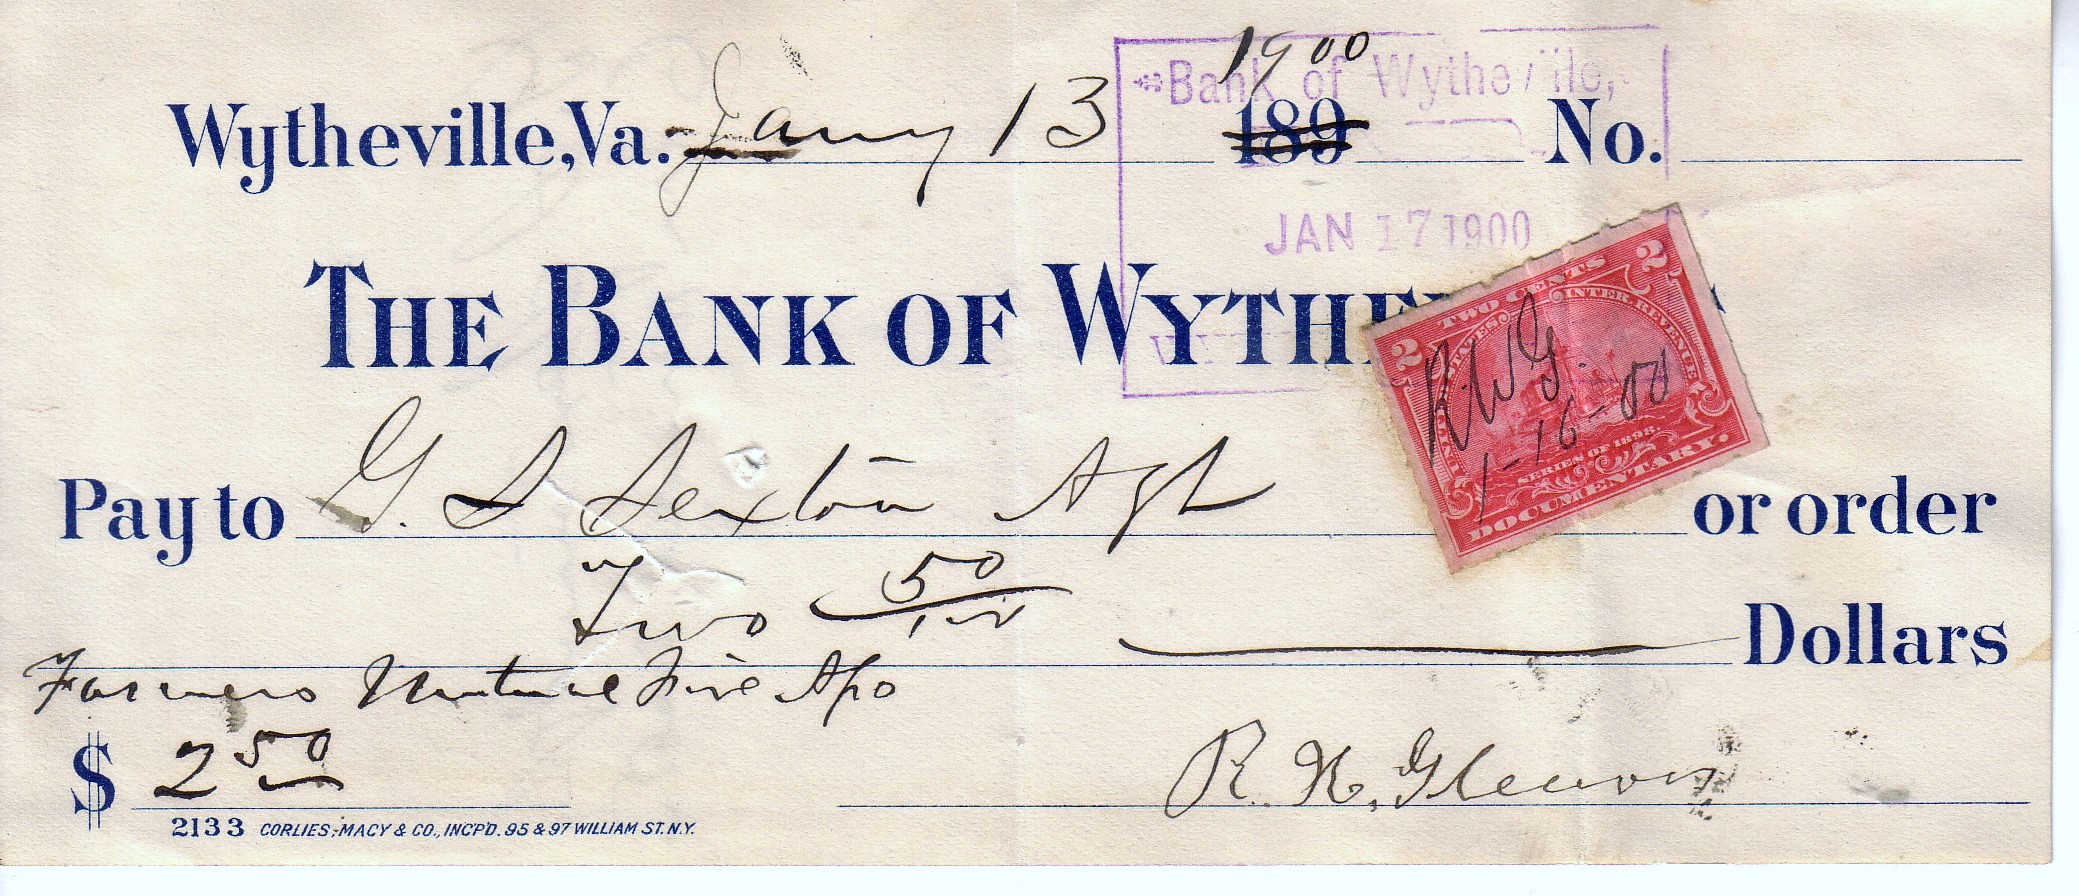 1900
Wytheville, Va. Jany 13 189 No.
Bank of Wytheville,
JAN 17 1900
THE BANK OF WYTHE
2 TWO CENTS 2
INTER. REVENUE
R.W.G.
1-16-00
SERIES OF 1898.
DOCUMENTARY.
Pay to G. S Sexton Agt or order
Two 50/100 Dollars
Farmers Mutual Fire
$ 2 50
R. W. Gleaves
2133 CORLIES, MACY & CO., INCP'D. 95 & 97 WILLIAM ST. N.Y.